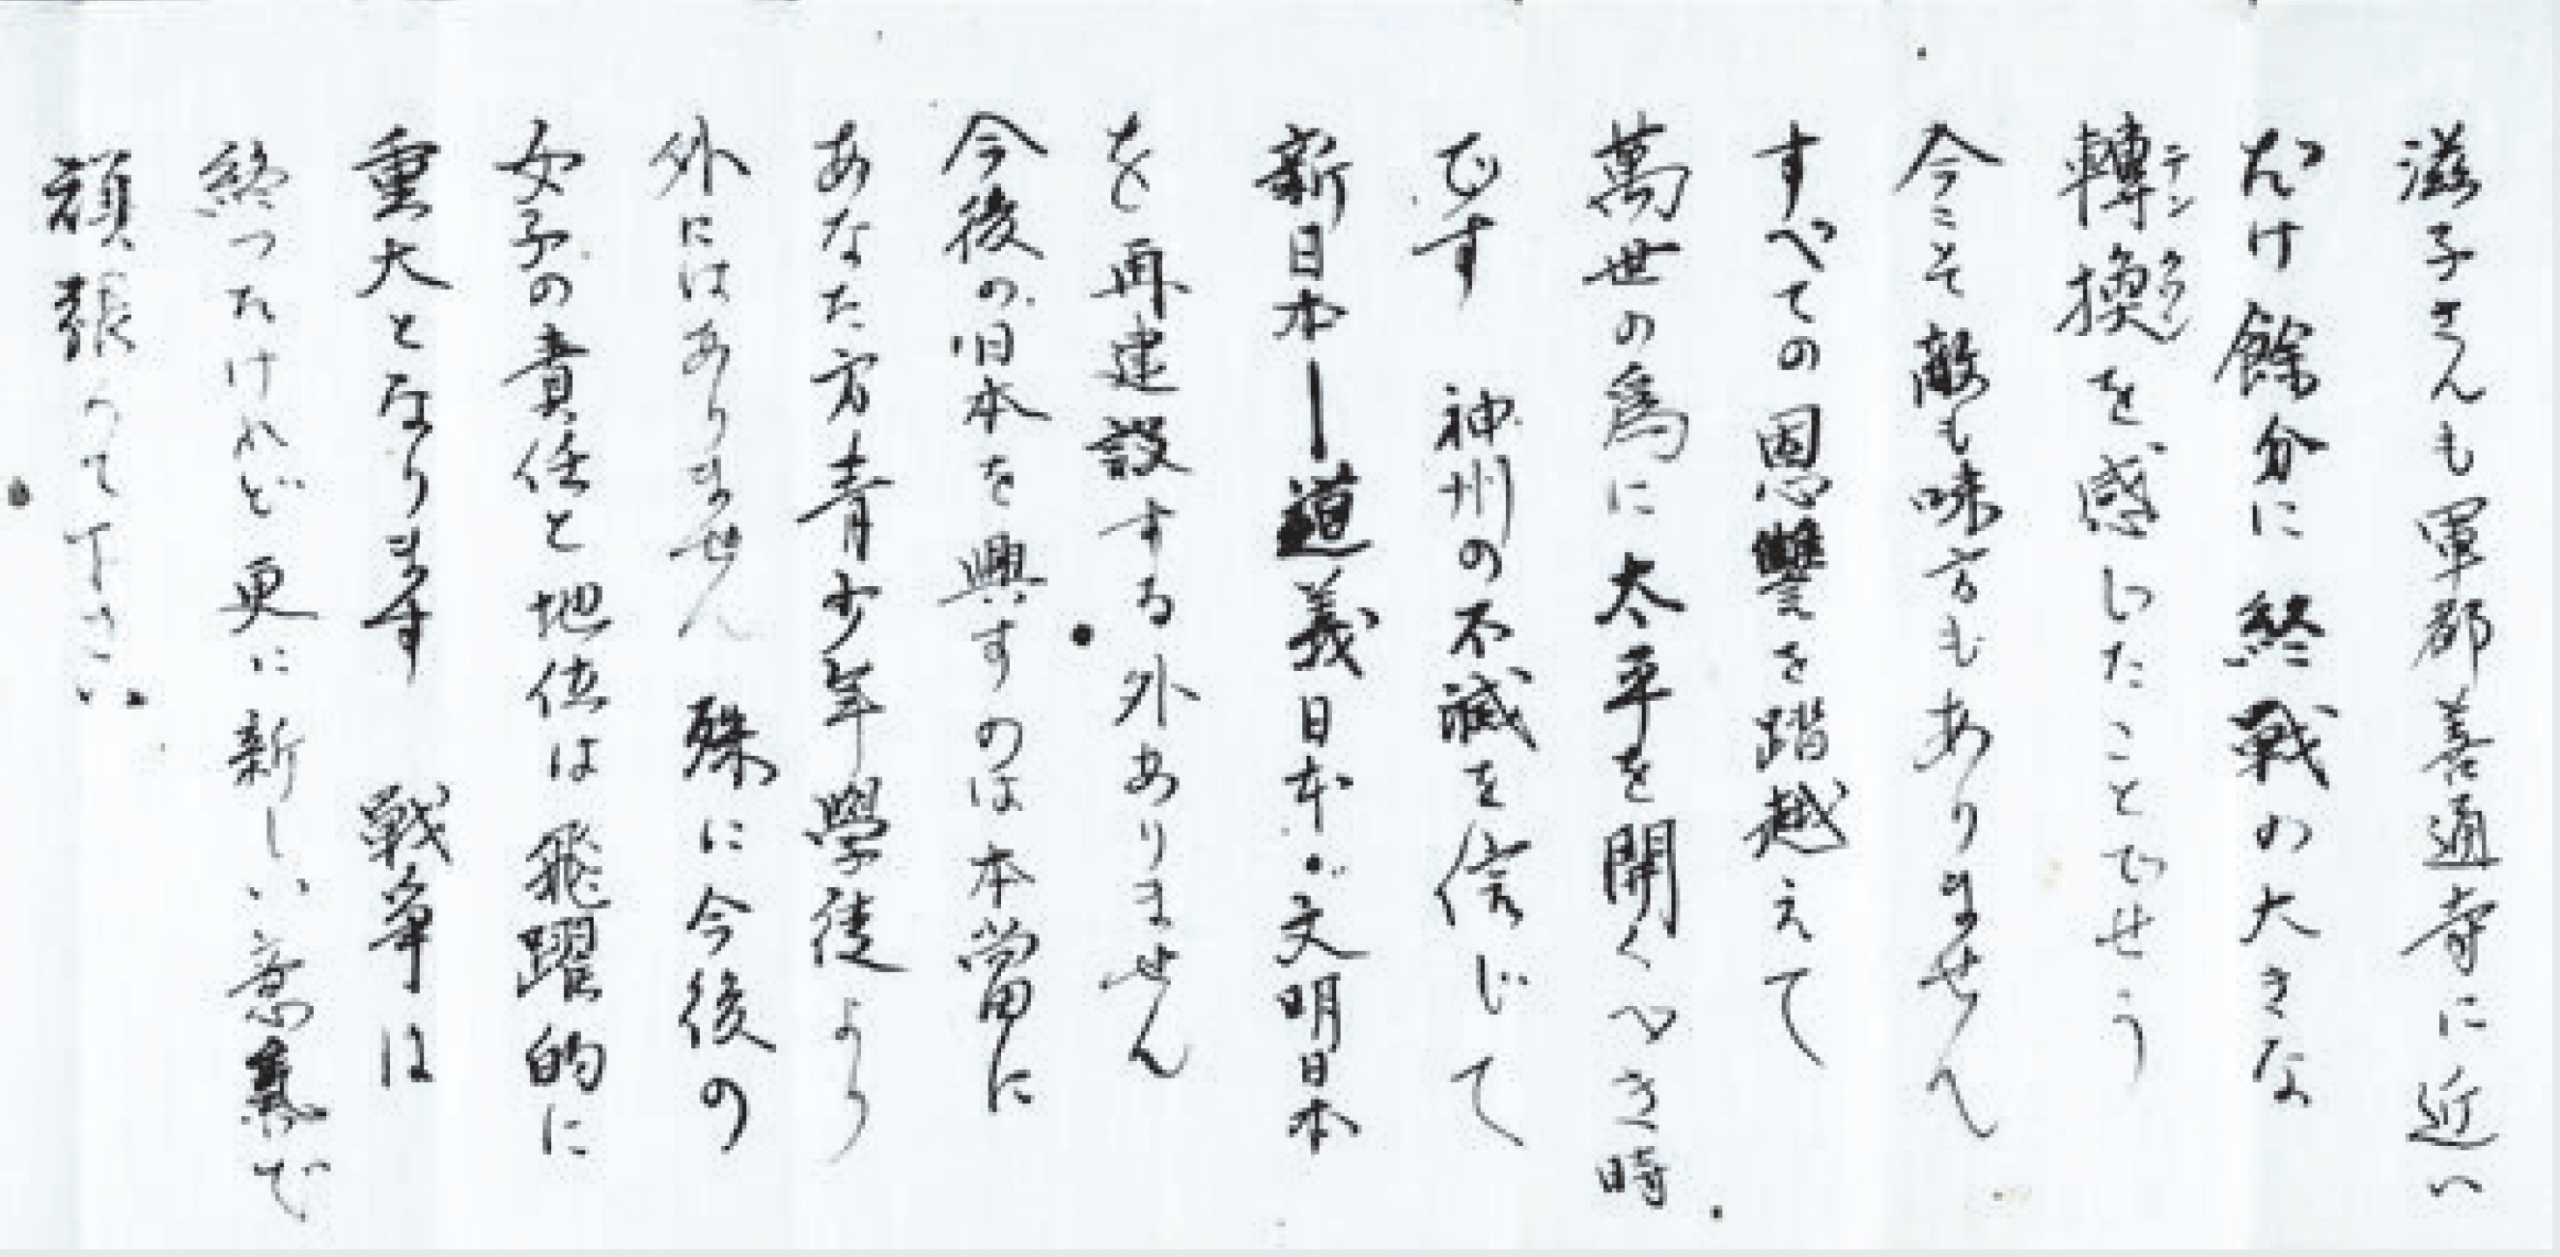 滋子さんも軍都善通寺に近い
だけ餘分に終戦の大きな
轉換を感じたことでせう
テンクワン
今こそ敵も味方もありません
すべての恩讐を踏越えて
萬世の為に太平を開くべき時
です 神州の不滅を信じて
新日本―道義日本・文明日本
を再建設する外ありません
今後の日本を興すのは本當に
あなた方青少年學徒より
外にはありません 殊に今後の
女子の責任と地位は飛躍的に
重大となります 戦争は
終つたけれど更に新しい意気で
頑張つて下さい